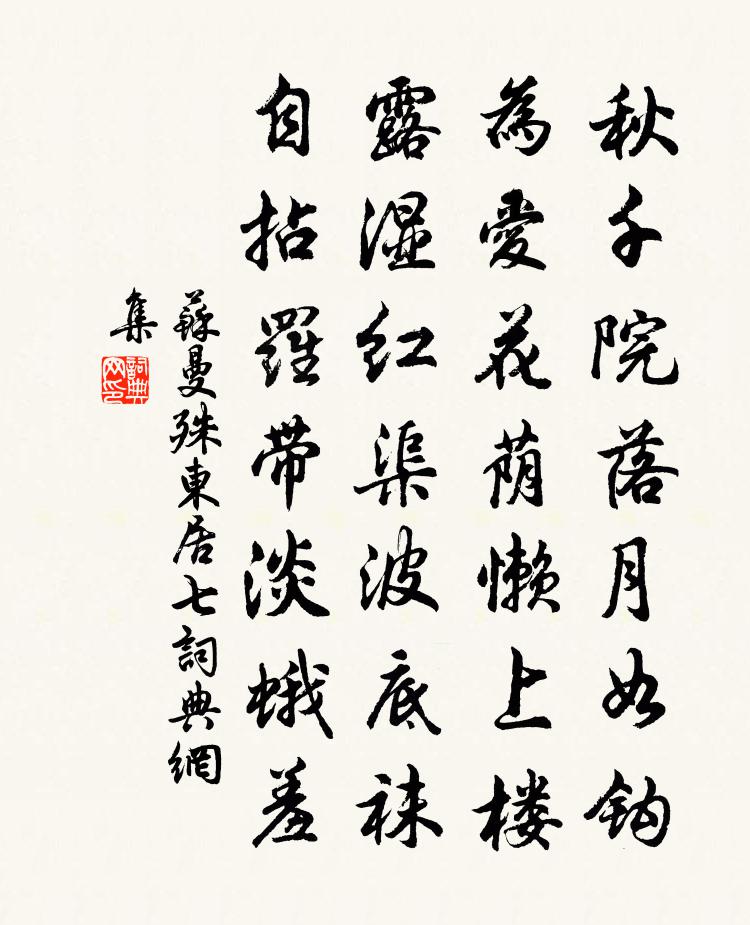 秋千院落月如钩
為愛花荫懒上楼
露湿红渠波底袜
自拈羅带淡蛾羞
蘇曼殊東居七詞典網
集
詞典
网印